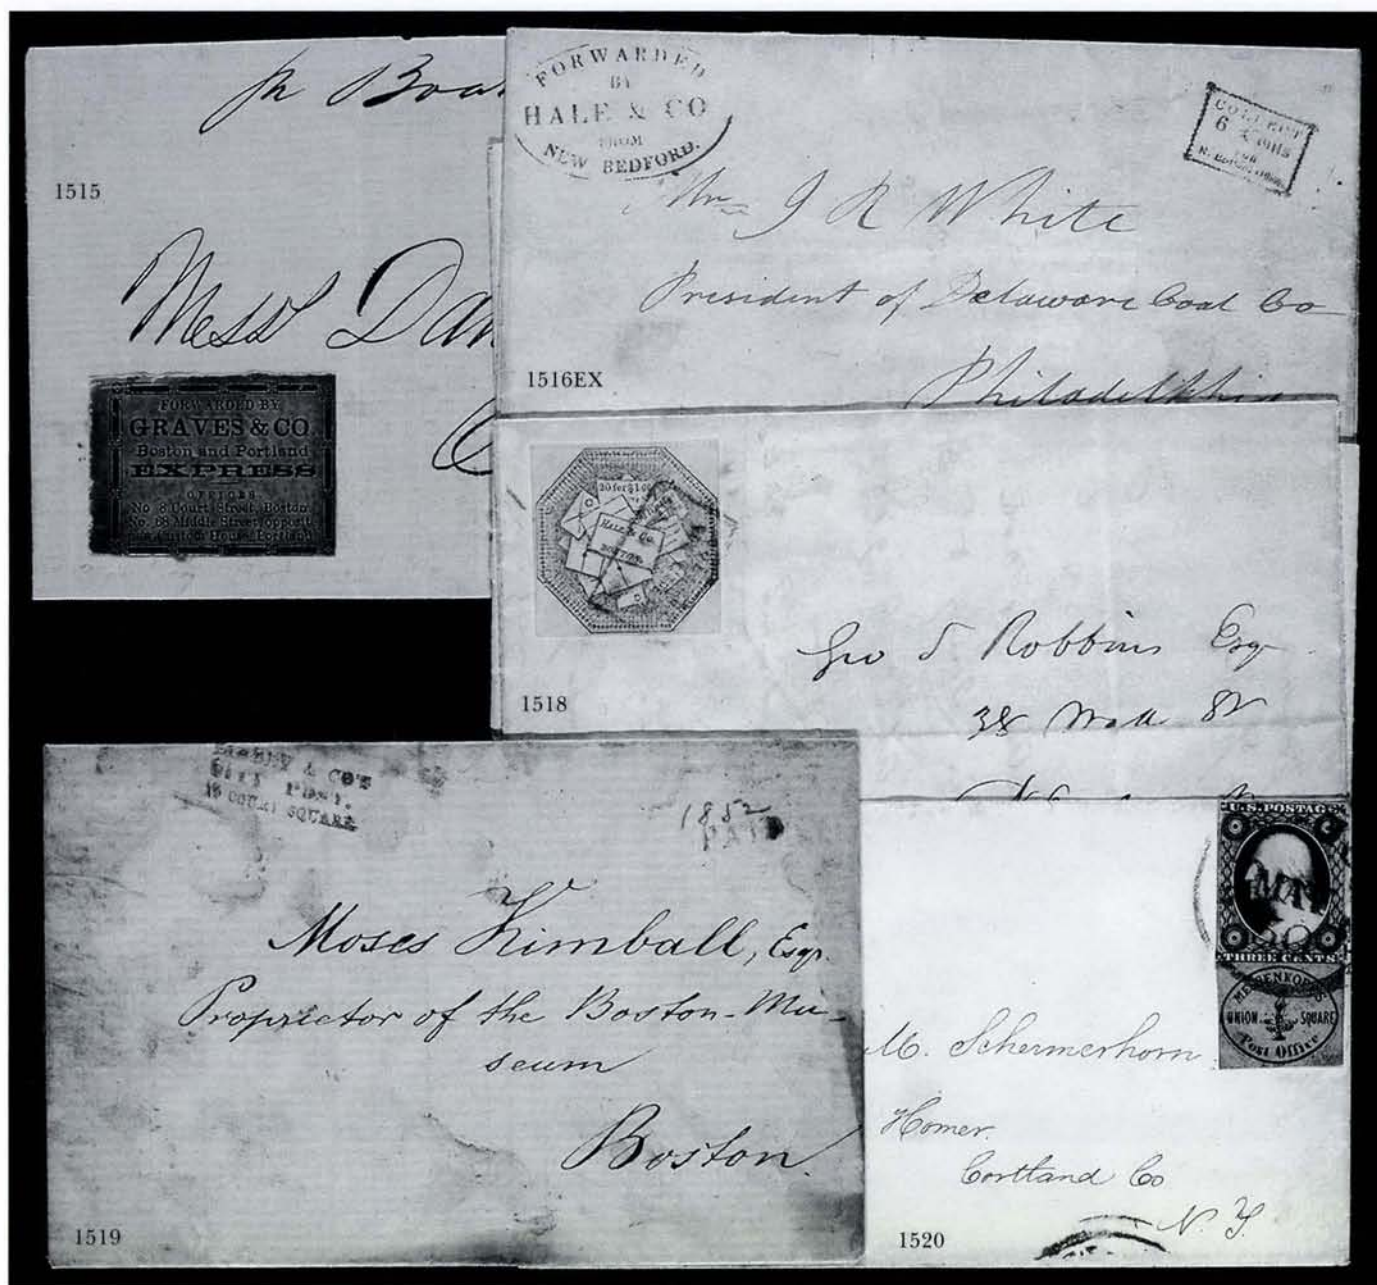 pr Boa
1515
Mess Dav
FORWARDED BY
GRAVES & CO
Boston and Portland
EXPRESS
OFFICES
No 8 Court Street, Boston
No. 68 Middle Street, opposit
Custom House, Portland
FORWARDED
BY
HALE & CO
FROM
NEW BEDFORD.
COLLECT
6
FOR
Mr J R White
President of Delaware Coal Co
Philadelphia
1516EX
20 for $1.00
HALE & Co.
BOSTON
Geo S Robbins Esq
38 Wall St
1518
& CO'S
CITY POST.
COURT SQUARE
1852
PAID
Moses Kimball, Esqr.
Proprietor of the Boston-Mu-
seum
Boston.
1519
U.S. POSTAGE
THREE CENTS
UNION SQUARE
Post Office
M. Schermerhorn
Homer.
Cortland Co
N. Y.
1520